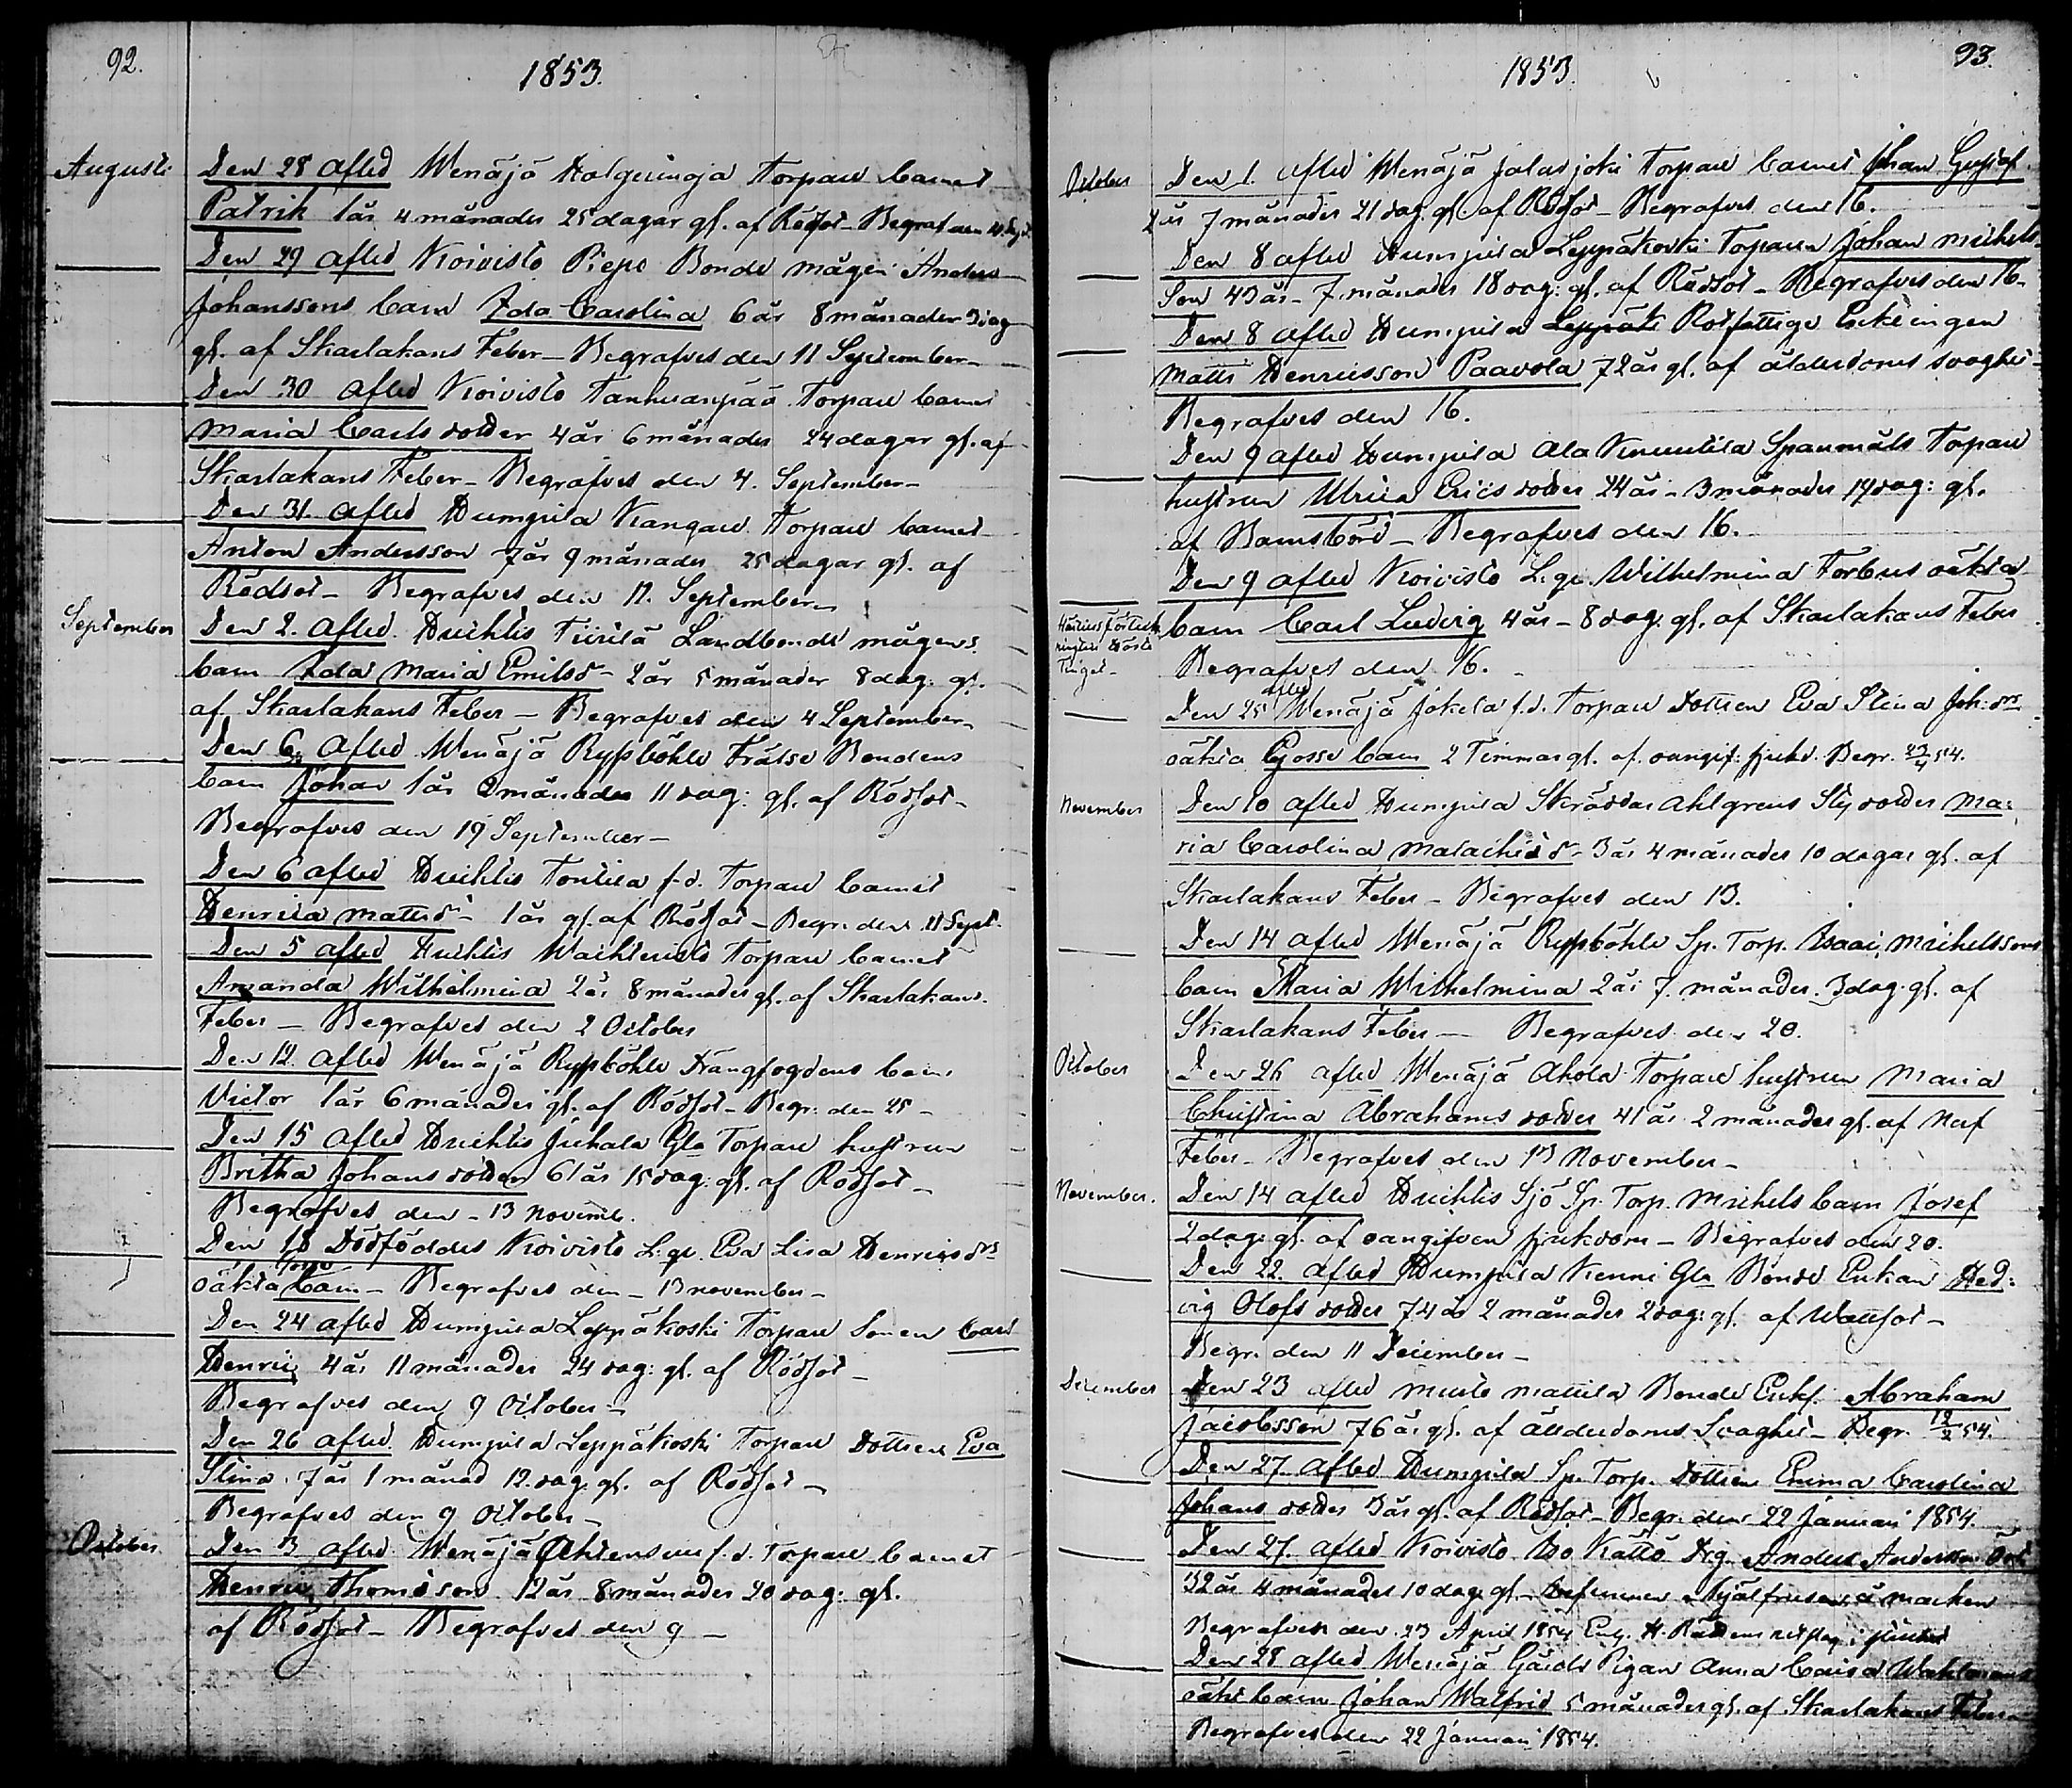 92.
1853.
Augusti
Den 28 afled Wenäjä Torpare barnet
Patrik 1 år 4 månader 25 dagar gl. af Rödsot - Begraf den
Den 29 afled Koivisto Piepo Bonde mågen Anders
Johanssons barn Ida Carolina 6 år 8 månader 3 dag
gl. af Skarlakans Feber - Begrafves den 11 September -
Den 30 afled Koivisto Tanhuanpää Torpare barnet
Maria Carlsdotter 4 år 6 månader 24 dagar gl. af
Skarlakans Feber - Begrafves den 4. September -
Den 31. afled Humpila Kangare Torpare barnet
Anton Andersson 7 år 9 månader 25 dagar gl. af
Rödsot - Begrafves den 11. September
September
Den 2. afled. Huhtis Tiirilä Landbonde mågens
barn Ida Maria Emilsd - 2 år 5 månader 8 dag. gl.
af Skarlakans Feber - Begrafves den 4 September
Den 6 afled Wenäjä Rypsböhle Frälse Bondens
barn Johan 1 år 2 månader 11 dag: gl. af Rödsot -
Begrafves den 19 September -
Den 6 afled Huhtis Tontila f.d. Torpare barnet
Henrica Mattsd - 1 år gl. af Rödsot - Begr. den 11 Sept.
Den 5 afled Huhtis Torpare barnet
Amanda Wilhelmina 2 år 8 månader gl. af Skarlakans
Feber - Begrafves den 2 October
Den 12. afled Wenäjä Rypsböhle Drängfogdens barn
Victor 1 år 6 månader gl. af Rödsot - Begr. den 25 -
Den 15 afled Huhtis Juhala Gla Torpare hustrun
Britha Johansdotter 61 år 15 dag: gl. af Rödsot -
Begrafves den - 13 novemb.
Den 18 Dödföddes Koivisto L:qv. Eva Lisa Henricsdrs
oäkta barn - Begrafves den - 13 november -
Den 24 afled Humpila Leppäkoski Torpare Sonen Carl
Henric 4 år 11 månader 24 dag: gl. af Rödsot -
Begrafves den 9 October -
Den 26 afled. Humpila Leppäkoski Torpare Dottren Eva
Stina 7 år 1 månad 12 dag. gl. af Rödsot -
Begrafves den 9 October -
October
Den 3 afled Wenäjä f.d. Torpare barnet
Henric Thomsson 12 år 8 månader 20 dag: gl.
af Rödsot - Begrafves den 9 -
93.
1853.
October
Den 1. afled Wenäjä Jalasjoki Torpare barnet Johan Gustaf
2 år 7 månader 21 dag. gl. af Rödsot - Begrafves den 16.
Den 8 afled Humpila Leppäkoski Torparen Johan Michels
Son 43 år - 7 månader 18 dag: gl. af Rödsot - Begrafves den 16.
Den 8 afled Humpila Rotfattige Enklingen
Matts Henricsson Paavola 72 år gl. af ålderdoms svaghet -
Begrafves den 16.
Den 9 afled Humpila Ala Kinuttila Spanmåls Torpare
hustrun Ulrica Ericsdotter 24 år - 3 månader 19 dag: gl.
af Barnsbörd - Begrafves den 16.
Den 9 afled Koivisto L:qv. Wilhelmina Forbus oäkta
barn Carl Ludvig 4 år - 8 dag. gl. af Skarlakans Feber
Begrafves den 16.
Höste
Tinget -
Den 25 afled Wenäjä Jokela f.d. Torpare Dottren Eva Stina Joh:drs
oäkta Gosse barn 2 Timmar gl. af oangif: sjukd. Begr. 23/4 54.
November
Den 10 afled Humpila Skräddar Ahlgrens Styfdotter Ma:
ria Carolina Malachiasd - 3 år 4 månader 10 dagar gl. af
Skarlakans Feber - Begrafves den 13.
Den 14 afled Wenäjä Rypsböhle Sp. Torp. Isaac Michelssons
barn Maria Wilhelmina 2 år 7. månader. 3 dag. gl. af
Skarlakans Feber - Begrafves den 20.
October
Den 26 afled Wenäjä Ahola Torpare hustrun Maria
Christina Abrahamsdotter 41 år 2 månader gl. af Nerf
Feber - Begrafves den 13 November -
November.
Den 14 afled Huhtis Sjö Sp. Torp. Michels barn Josef
2 dag: gl. af oangifven sjukdom - Begrafves den 20.
Den 22. afled Humpila Kenni Gla Bonde Enkan Hed:
vig Olofsdotter 74 år 2 månader 2 dag: gl. af Wattsot -
Begr. den 11 December -
December
Den 23 afled Murto Mattila Bonde Enkl. Abraham
Jacobsson 76 år gl. af ålderdoms Svaghet - Begr. 12/2 54.
Den 27. afled Humpila Sp. Torp. Dottren Emma Carolina
Johansdotter 3 år gl. af Rödsot - Begr. den 22 Januari 1854.
Den 27. afled Koivisto Iso Kättö Drg. Anders Andersson
32 år 4 månader 10 dag. gl. - ihjälfrusen å marken
Begrafven den 23 April 1854 Enl. H. Rättens utslag
Den 28 afled Wenäjä Gårds Pigan Anna Caisa Wahlmans
oäkt barn Johan Walfrid 5 månader gl. af Skarlakans Feber
Begrafves den 22 Januari 1854.